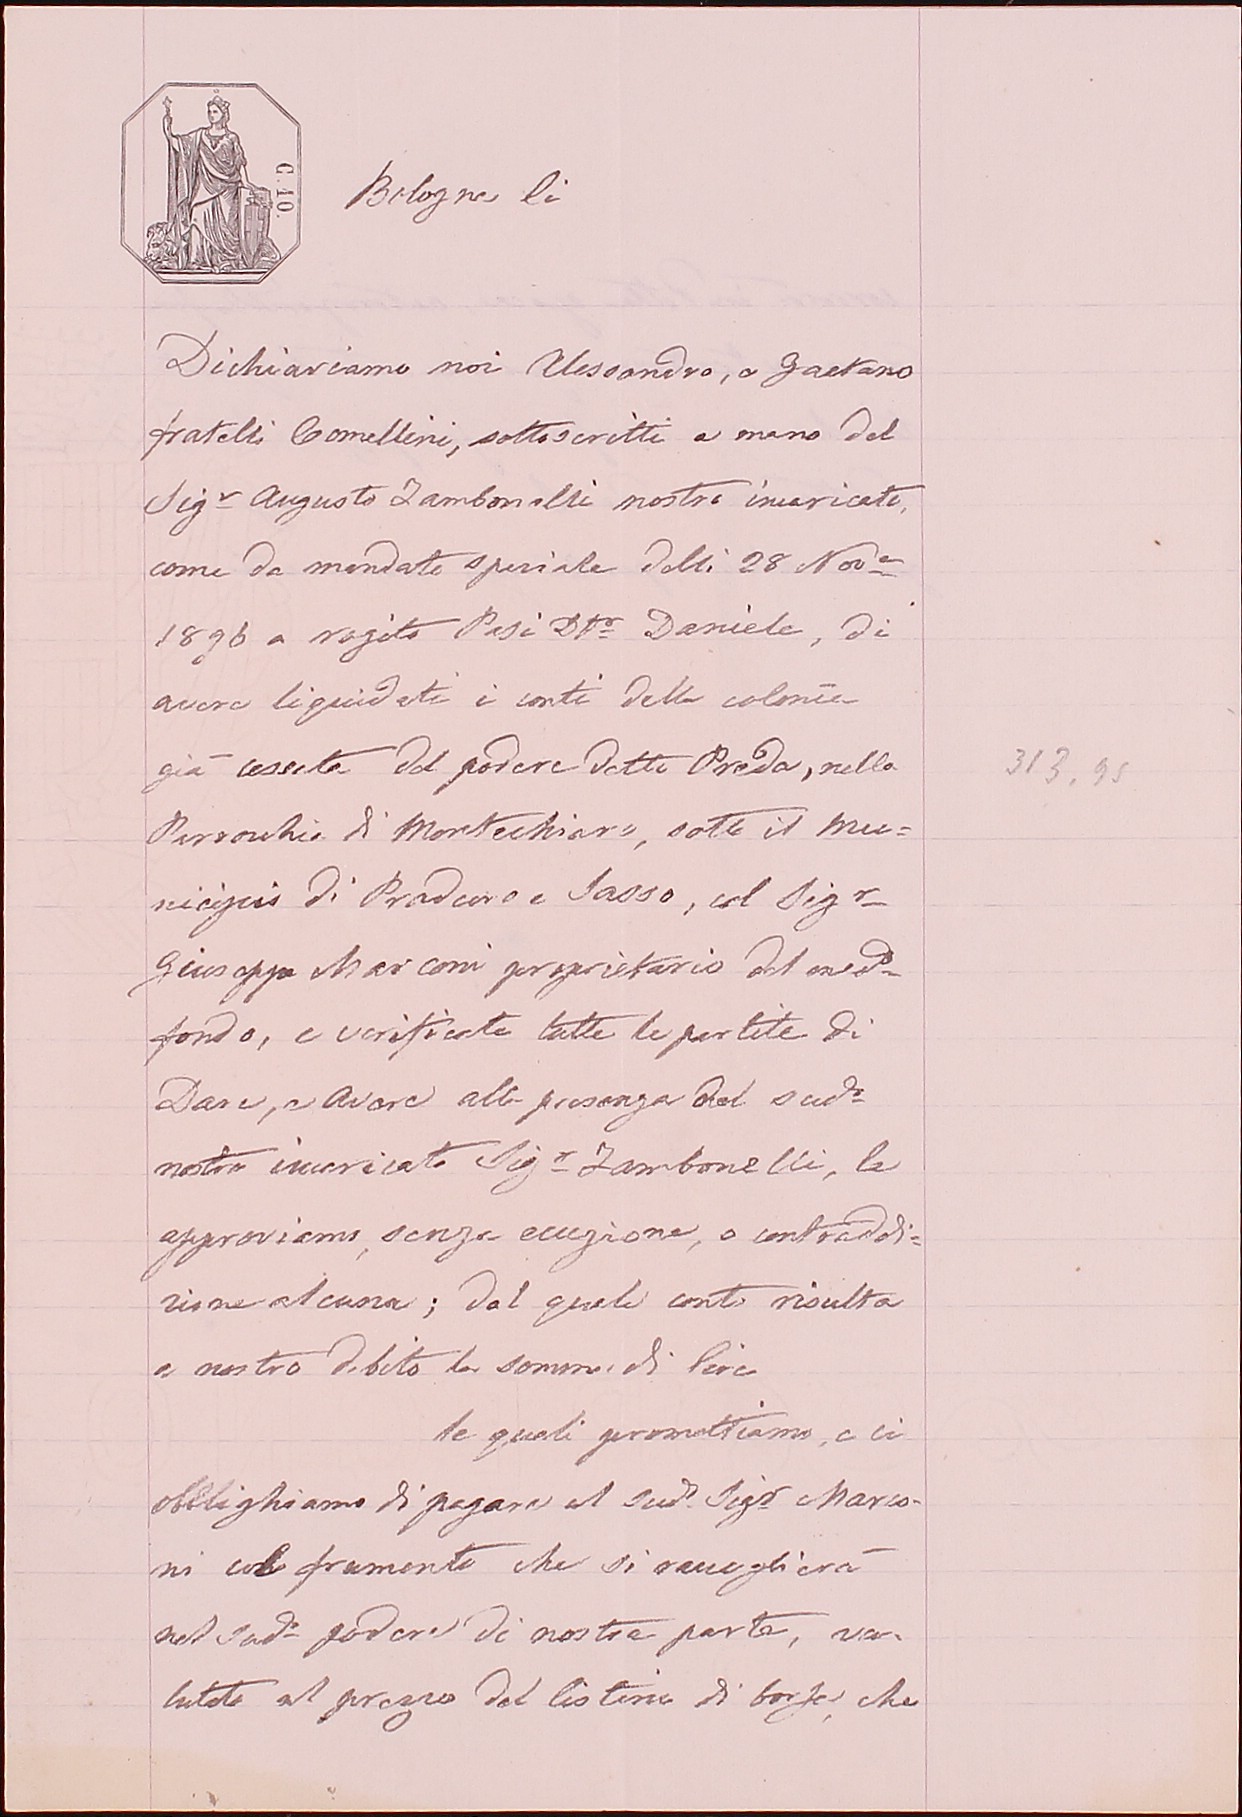 C. 10.
Bologna li
Dichiariamo noi Alessandro, e Gaetano
fratelli Comellini, sottoscritti a mano del
Sigr Augusto Zambonelli nostro incaricato,
come da mandato speciale delli 28 Nove
1896 a rogito Pasi Dtr Daniele, di
avere liquidati i conti della colonìa
già cessata del podere detto Preda, nella
Parrocchia di Montechiaro, sotto il Mu=
nicipio di Praduro e Sasso, col Sigr
Giuseppe Marconi proprietario del medo
fondo, e verificate tutte le partite di
Dare, e Avere alla presenza del sudo
nostro incaricato Sigr Zambonelli, le
approviamo, senza eccezione, o contraddi=
zione alcuna; dal quale conto risulta
a nostro debito la somma di lire
le quali promettiamo, e ci
obblighiamo di pagare al sudo Sigr Marco-
ni col frumento che si raccoglierà
nel sudo podere di nostra parte, va-
lutato al prezzo del listino di borsa, che
313,95